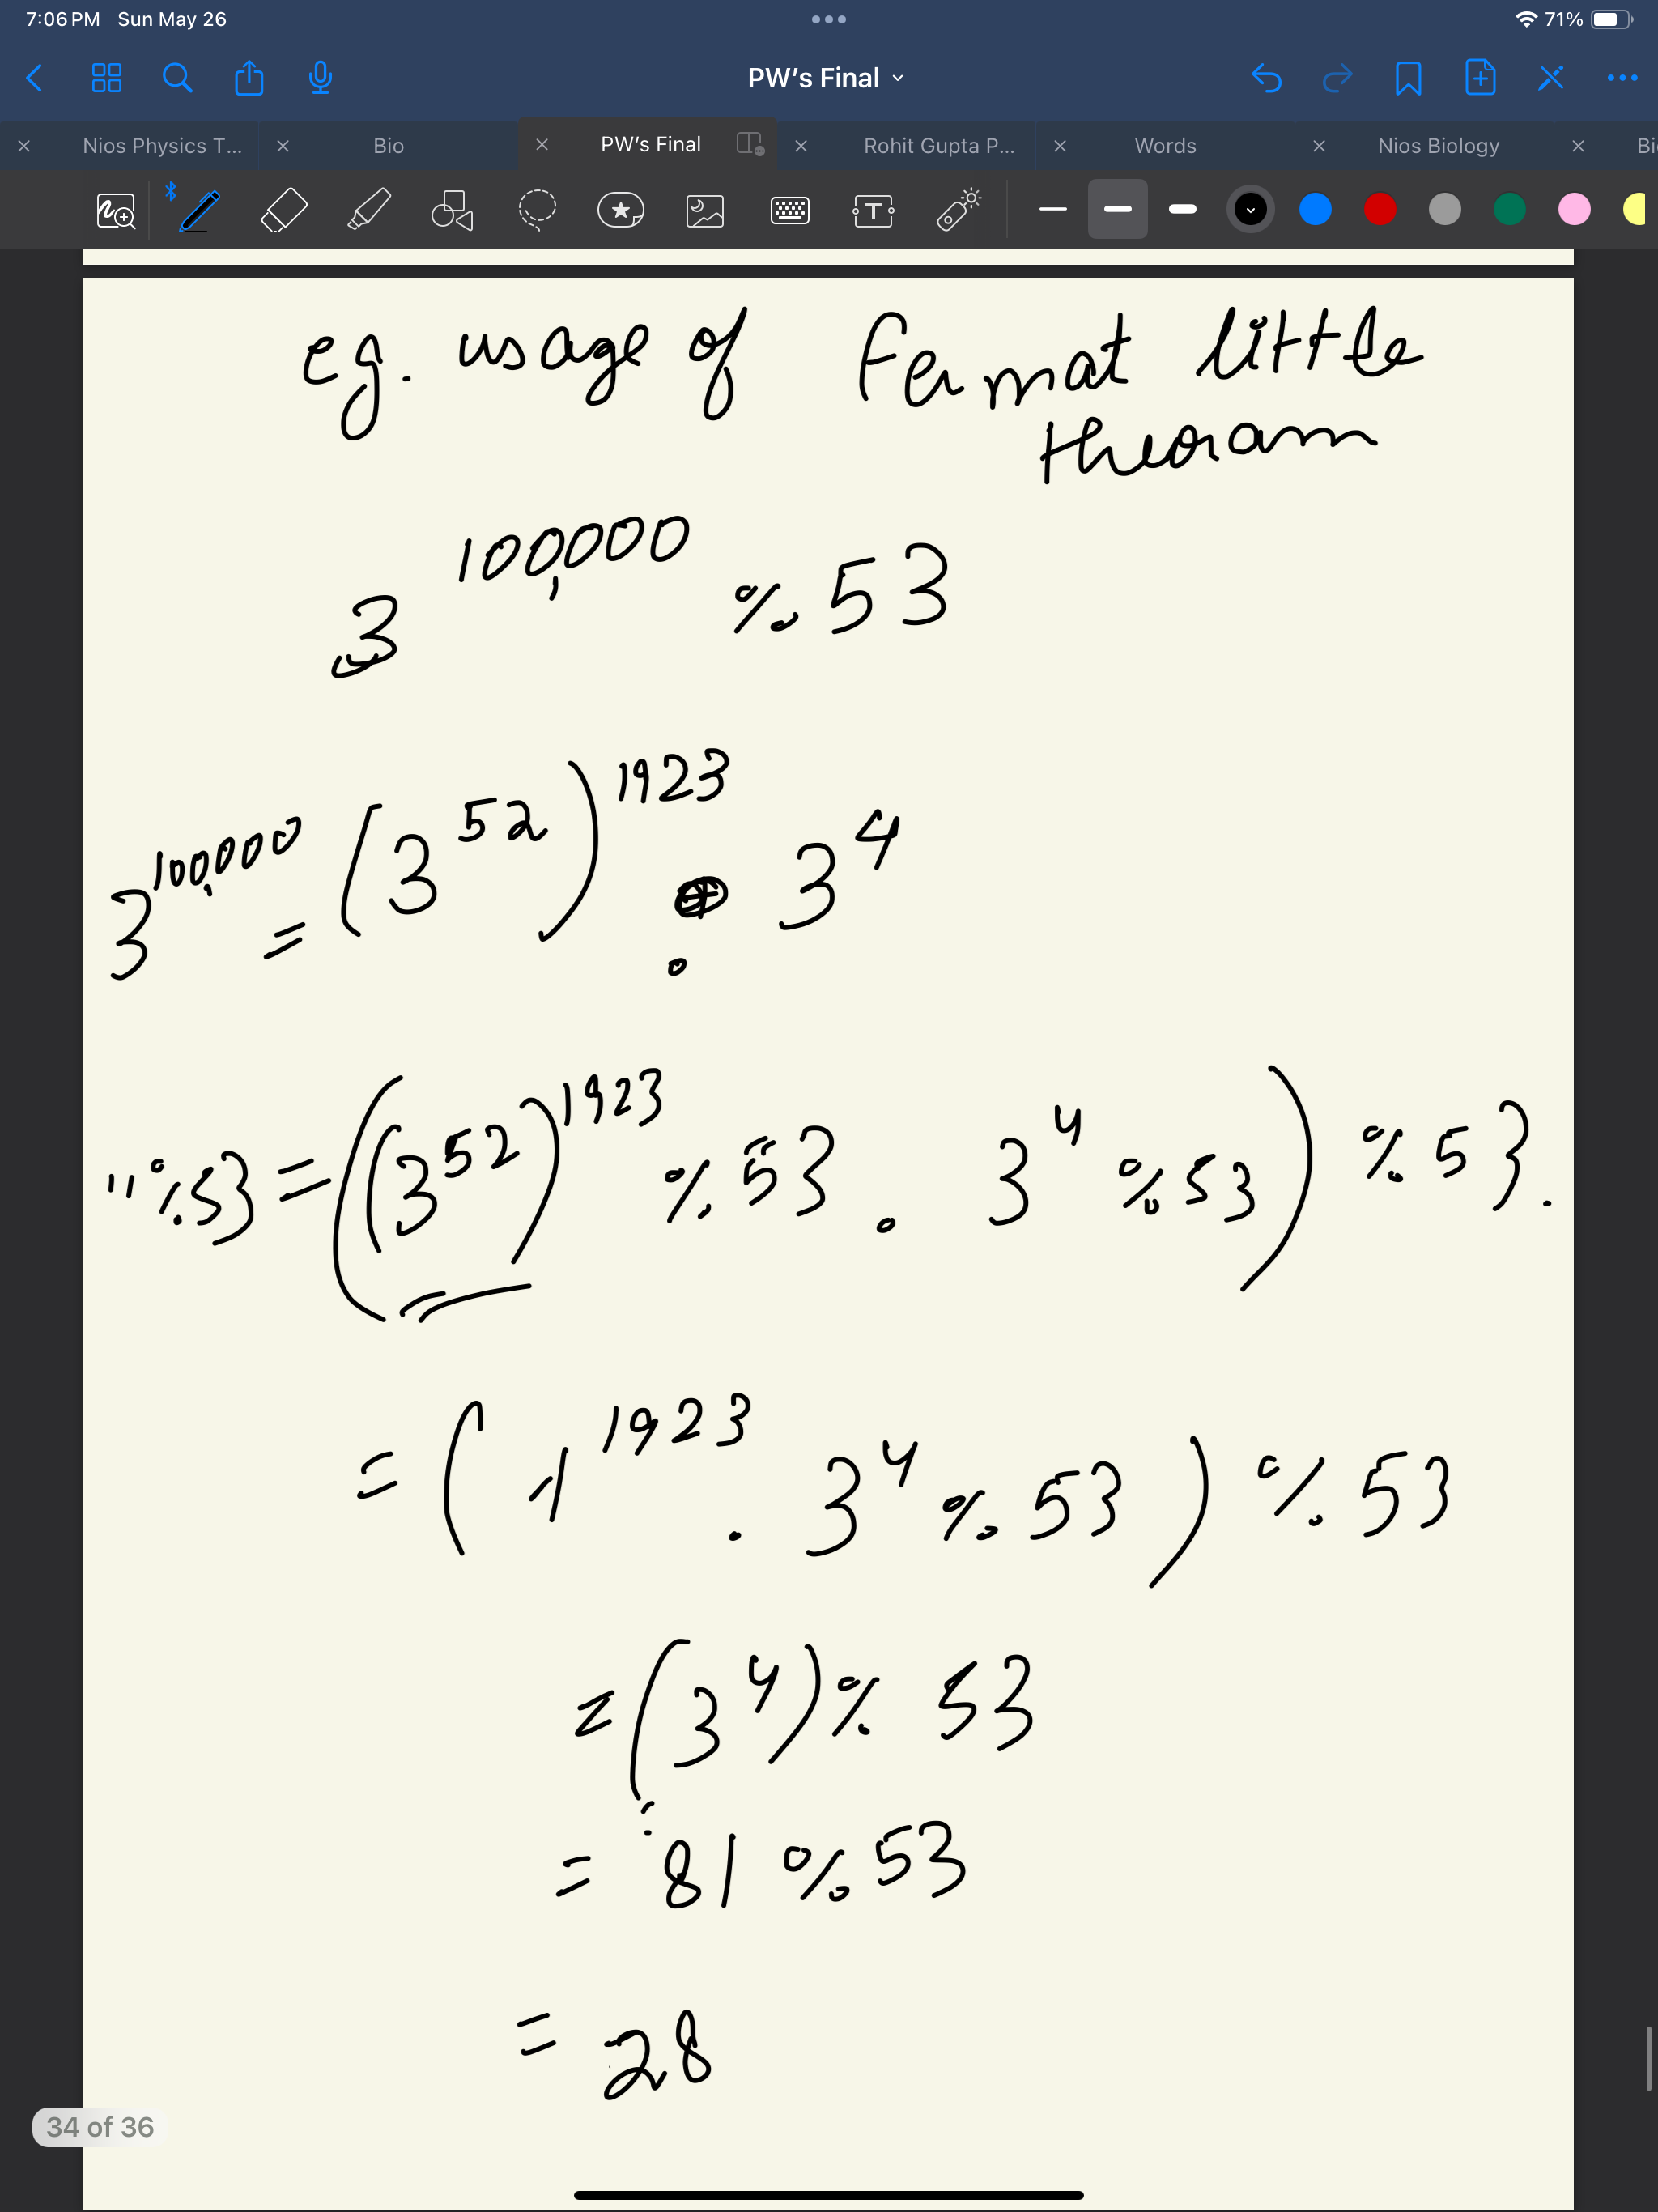 7:06 PM Sun May 26 71%
PW's Final
Nios Physics T... Bio PW's Final Rohit Gupta P... Words Nios Biology Bi
T
eg. usage of Fermat little
theoram
3^100,000 % 53
3^100,000 = (3^52)^1923 . 3^4
" % 53 = ((3^52)^1923 % 53 . 3^4 % 53) % 53.
= (1^1923 . 3^4 % 53) % 53
= (3^4) % 53
= 81 % 53
= 28
34 of 36